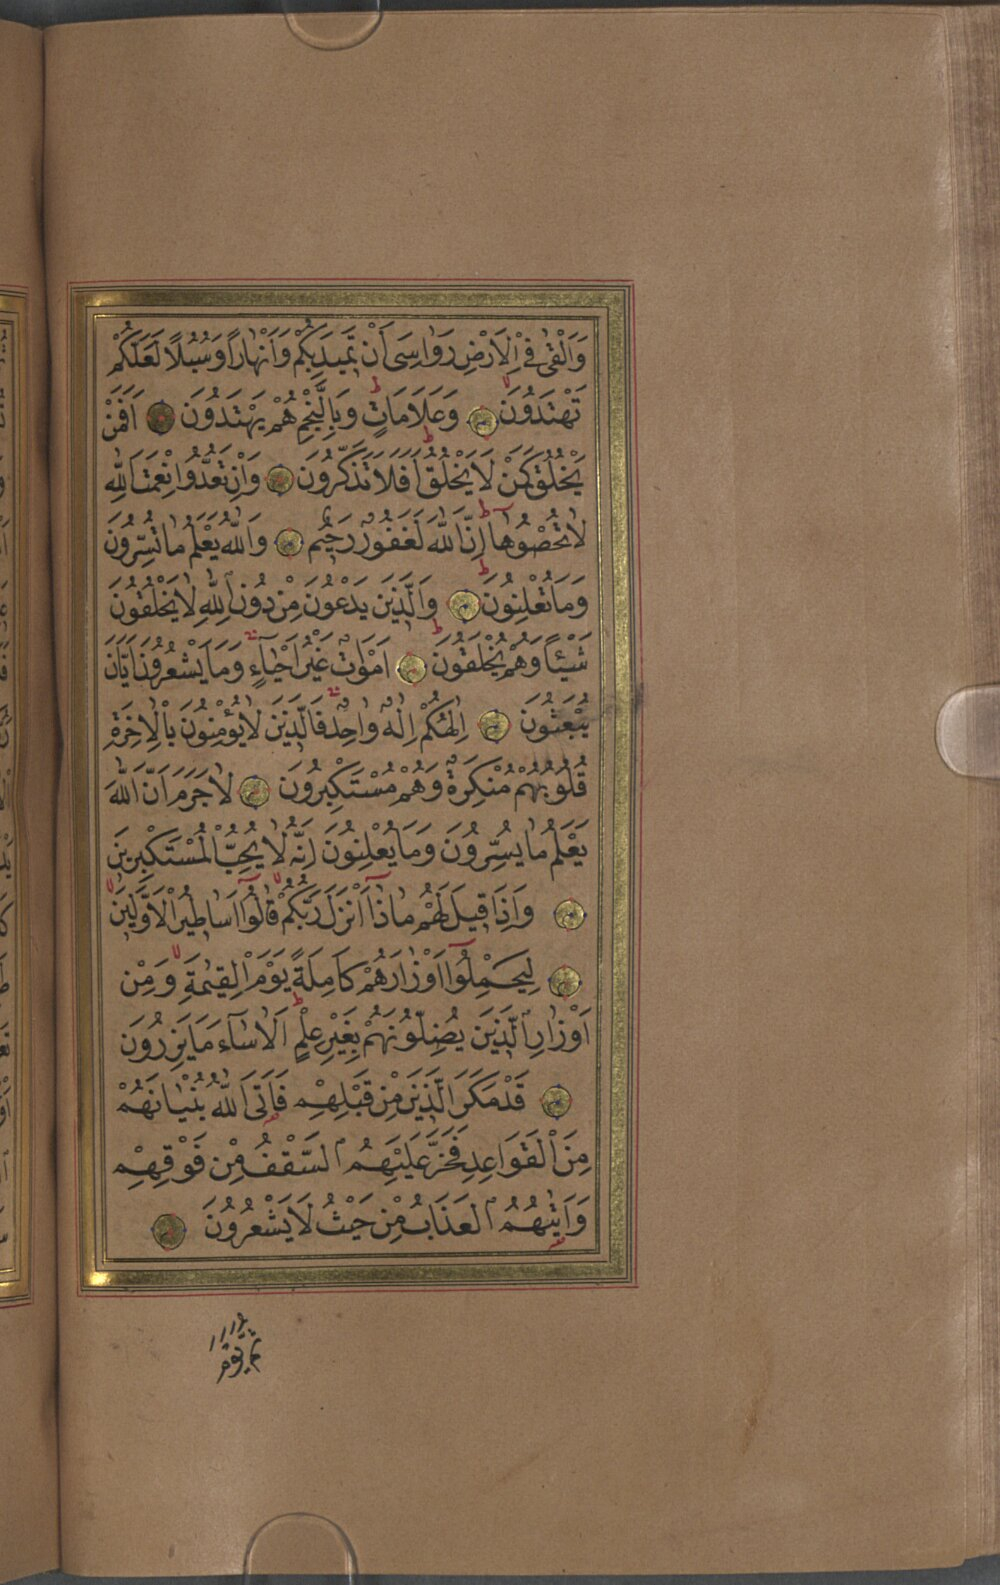 وَاَلْقٰى فِي الْاَرْضِ رَوَاسِىَ اَنْ تَمِيدَ بِكُمْ وَاَنْهَارًا وَسُبُلًا لَعَلَّكُمْ
تَهْتَدُونَ وَعَلَامَاتٍ وَبِالنَّجْمِ هُمْ يَهْتَدُونَ اَفَمَنْ
يَخْلُقُ كَمَنْ لَا يَخْلُقُ اَفَلَا تَذَكَّرُونَ وَاِنْ تَعُدُّوا نِعْمَتَ اللّٰهِ
لَا تُحْصُوهَا اِنَّ اللّٰهَ لَغَفُورٌ رَحِيمٌ وَاللّٰهُ يَعْلَمُ مَا تُسِرُّونَ
وَمَا تُعْلِنُونَ وَالَّذِينَ يَدْعُونَ مِنْ دُونِ اللّٰهِ لَا يَخْلُقُونَ
شَيْئًا وَهُمْ يُخْلَقُونَ اَمْوَاتٌ غَيْرُ اَحْيَآءٍ وَمَا يَشْعُرُونَ اَيَّانَ
يُبْعَثُونَ اِلٰهُكُمْ اِلٰهٌ وَاحِدٌ فَالَّذِينَ لَا يُؤْمِنُونَ بِالْاٰخِرَةِ
قُلُوبُهُمْ مُنْكِرَةٌ وَهُمْ مُسْتَكْبِرُونَ لَا جَرَمَ اَنَّ اللّٰهَ
يَعْلَمُ مَا يُسِرُّونَ وَمَا يُعْلِنُونَ اِنَّهُ لَا يُحِبُّ الْمُسْتَكْبِرِينَ
وَاِذَا قِيلَ لَهُمْ مَاذَآ اَنْزَلَ رَبُّكُمْ قَالُوٓا اَسَاطِيرُ الْاَوَّلِينَ
لِيَحْمِلُوٓا اَوْزَارَهُمْ كَامِلَةً يَوْمَ الْقِيٰمَةِ وَمِنْ
اَوْزَارِ الَّذِينَ يُضِلُّونَهُمْ بِغَيْرِ عِلْمٍ اَلَا سَآءَ مَا يَزِرُونَ
قَدْ مَكَرَ الَّذِينَ مِنْ قَبْلِهِمْ فَاَتَى اللّٰهُ بُنْيَانَهُمْ
مِنَ الْقَوَاعِدِ فَخَرَّ عَلَيْهِمُ السَّقْفُ مِنْ فَوْقِهِمْ
وَاَتٰيهُمُ الْعَذَابُ مِنْ حَيْثُ لَا يَشْعُرُونَ